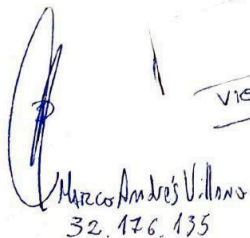 VIE
Marco Andrés Villano
32.176.135